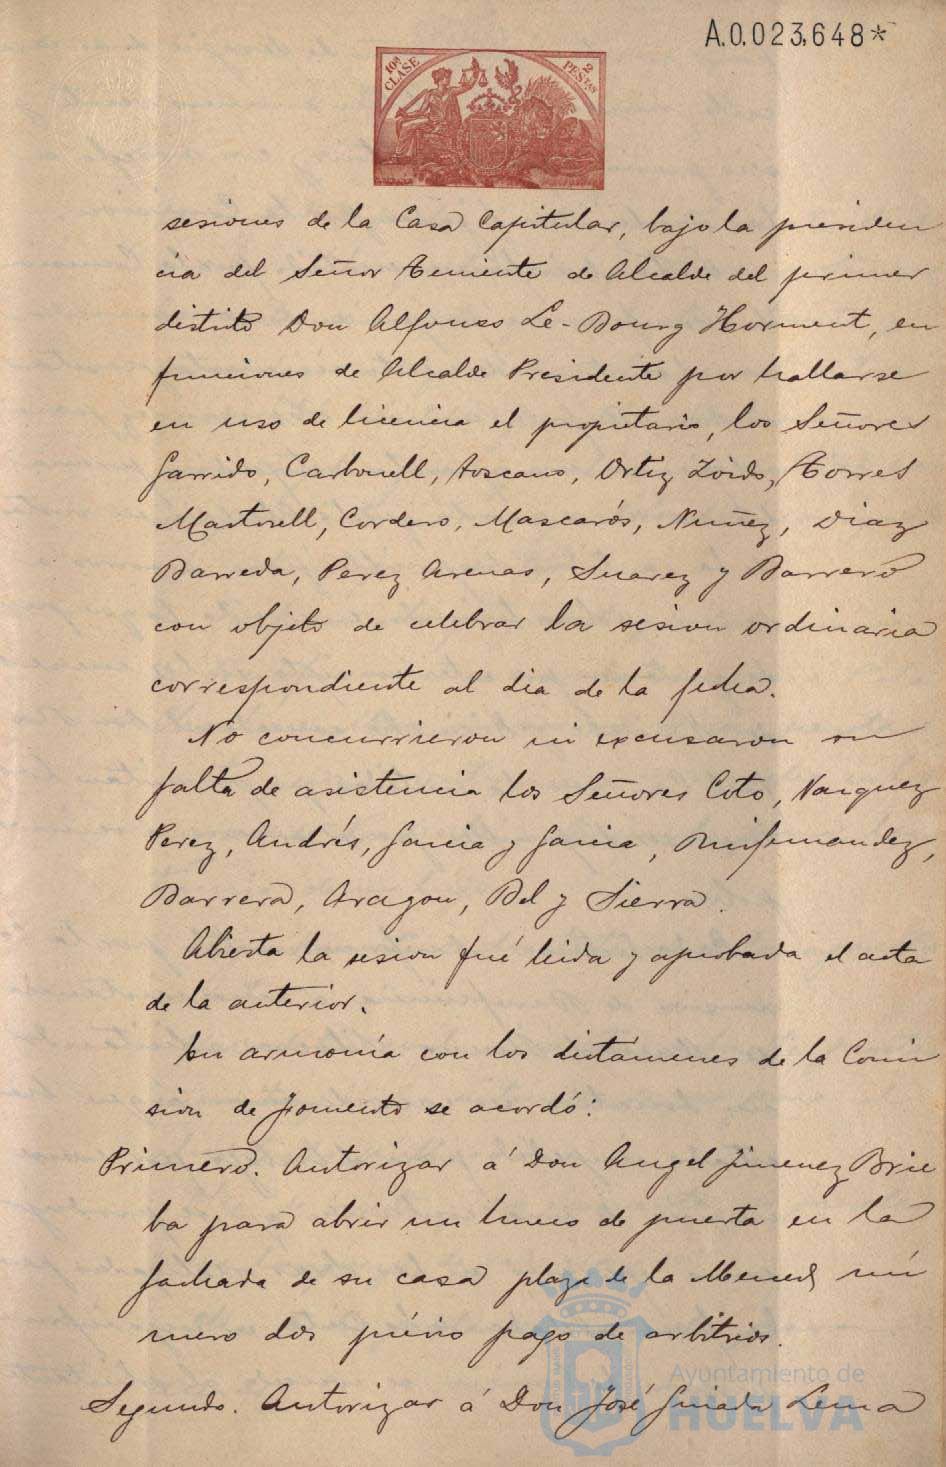 A.0,023,648*
10ª CLASE
2 PESETAS
sesiones de la Casa Capitular, bajo la presiden
cia del Señor Teniente de Alcalde del primer
distrito Don Alfonso Le-Bourg Horment, en
funciones de Alcalde Presidente por hallarse
en uso de licencia el propietario, los Señores
Garrido, Carbonell, Toscano, Ortiz Toids, Torres
Martorell, Cordero, Mascarós, Nuñez, Diaz
Barreda, Perez Arenas, Suarez y Barrero
con objeto de celebrar la sesion ordinaria
correspondiente al dia de la fecha.
No concurrieron ni excusaron su
falta de asistencia los Señores Coto, Vazquez
Perez, Andrés, Garcia y Garcia, Ruifernandez,
Barrera, Aragon, Bel y Sierra.
Abierta la sesion fué leida y aprobada el acta
de la anterior.
En armonía con los dictámenes de la Comi
sion de Fomento se acordó:
Primero. Autorizar á Don Angel Jimenez Brie
ba para abrir un hueco de puerta en la
fachada de su casa plaza de la Merced nú
mero dos prévio pago de arbitrios.
Segundo. Autorizar á Don José Lema
Ayuntamiento de
HUELVA